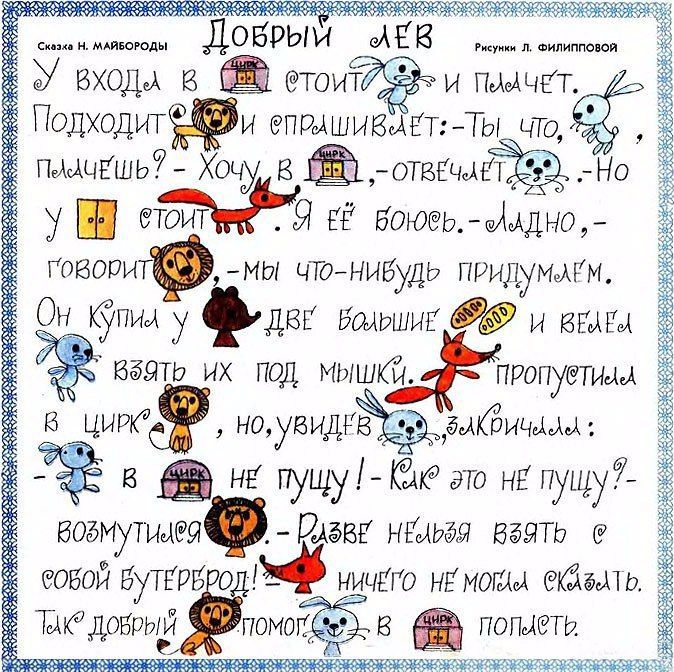 Сказка Н. МАЙБОРОДЫ
ДОБРЫЙ ЛЕВ
Рисунки Л. ФИЛИППОВОЙ
У ВХОДА В ЦИРК СТОИТ И ПЛАЧЕТ.
ПОДХОДИТ И СПРАШИВАЕТ:-ТЫ ЧТО, ,
ПЛАЧЕШЬ? - ХОЧУ В ЦИРК ,-ОТВЕЧАЕТ .-НО
У СТОИТ . Я ЕЁ БОЮСЬ.-ЛАДНО,-
ГОВОРИТ ,-МЫ ЧТО-НИБУДЬ ПРИДУМАЕМ.
ОН КУПИЛ У ДВЕ БОЛЬШИЕ И ВЕЛЕЛ
ВЗЯТЬ ИХ ПОД МЫШКИ. ПРОПУСТИЛА
В ЦИРК , НО, УВИДЕВ ,ЗАКРИЧАЛА:
- В ЦИРК НЕ ПУЩУ!-КАК ЭТО НЕ ПУЩУ?-
ВОЗМУТИЛСЯ .-РАЗВЕ НЕЛЬЗЯ ВЗЯТЬ С
СОБОЙ БУТЕРБРОД!- НИЧЕГО НЕ МОГЛА СКАЗАТЬ.
ТАК ДОБРЫЙ ПОМОГ В ЦИРК ПОПАСТЬ.